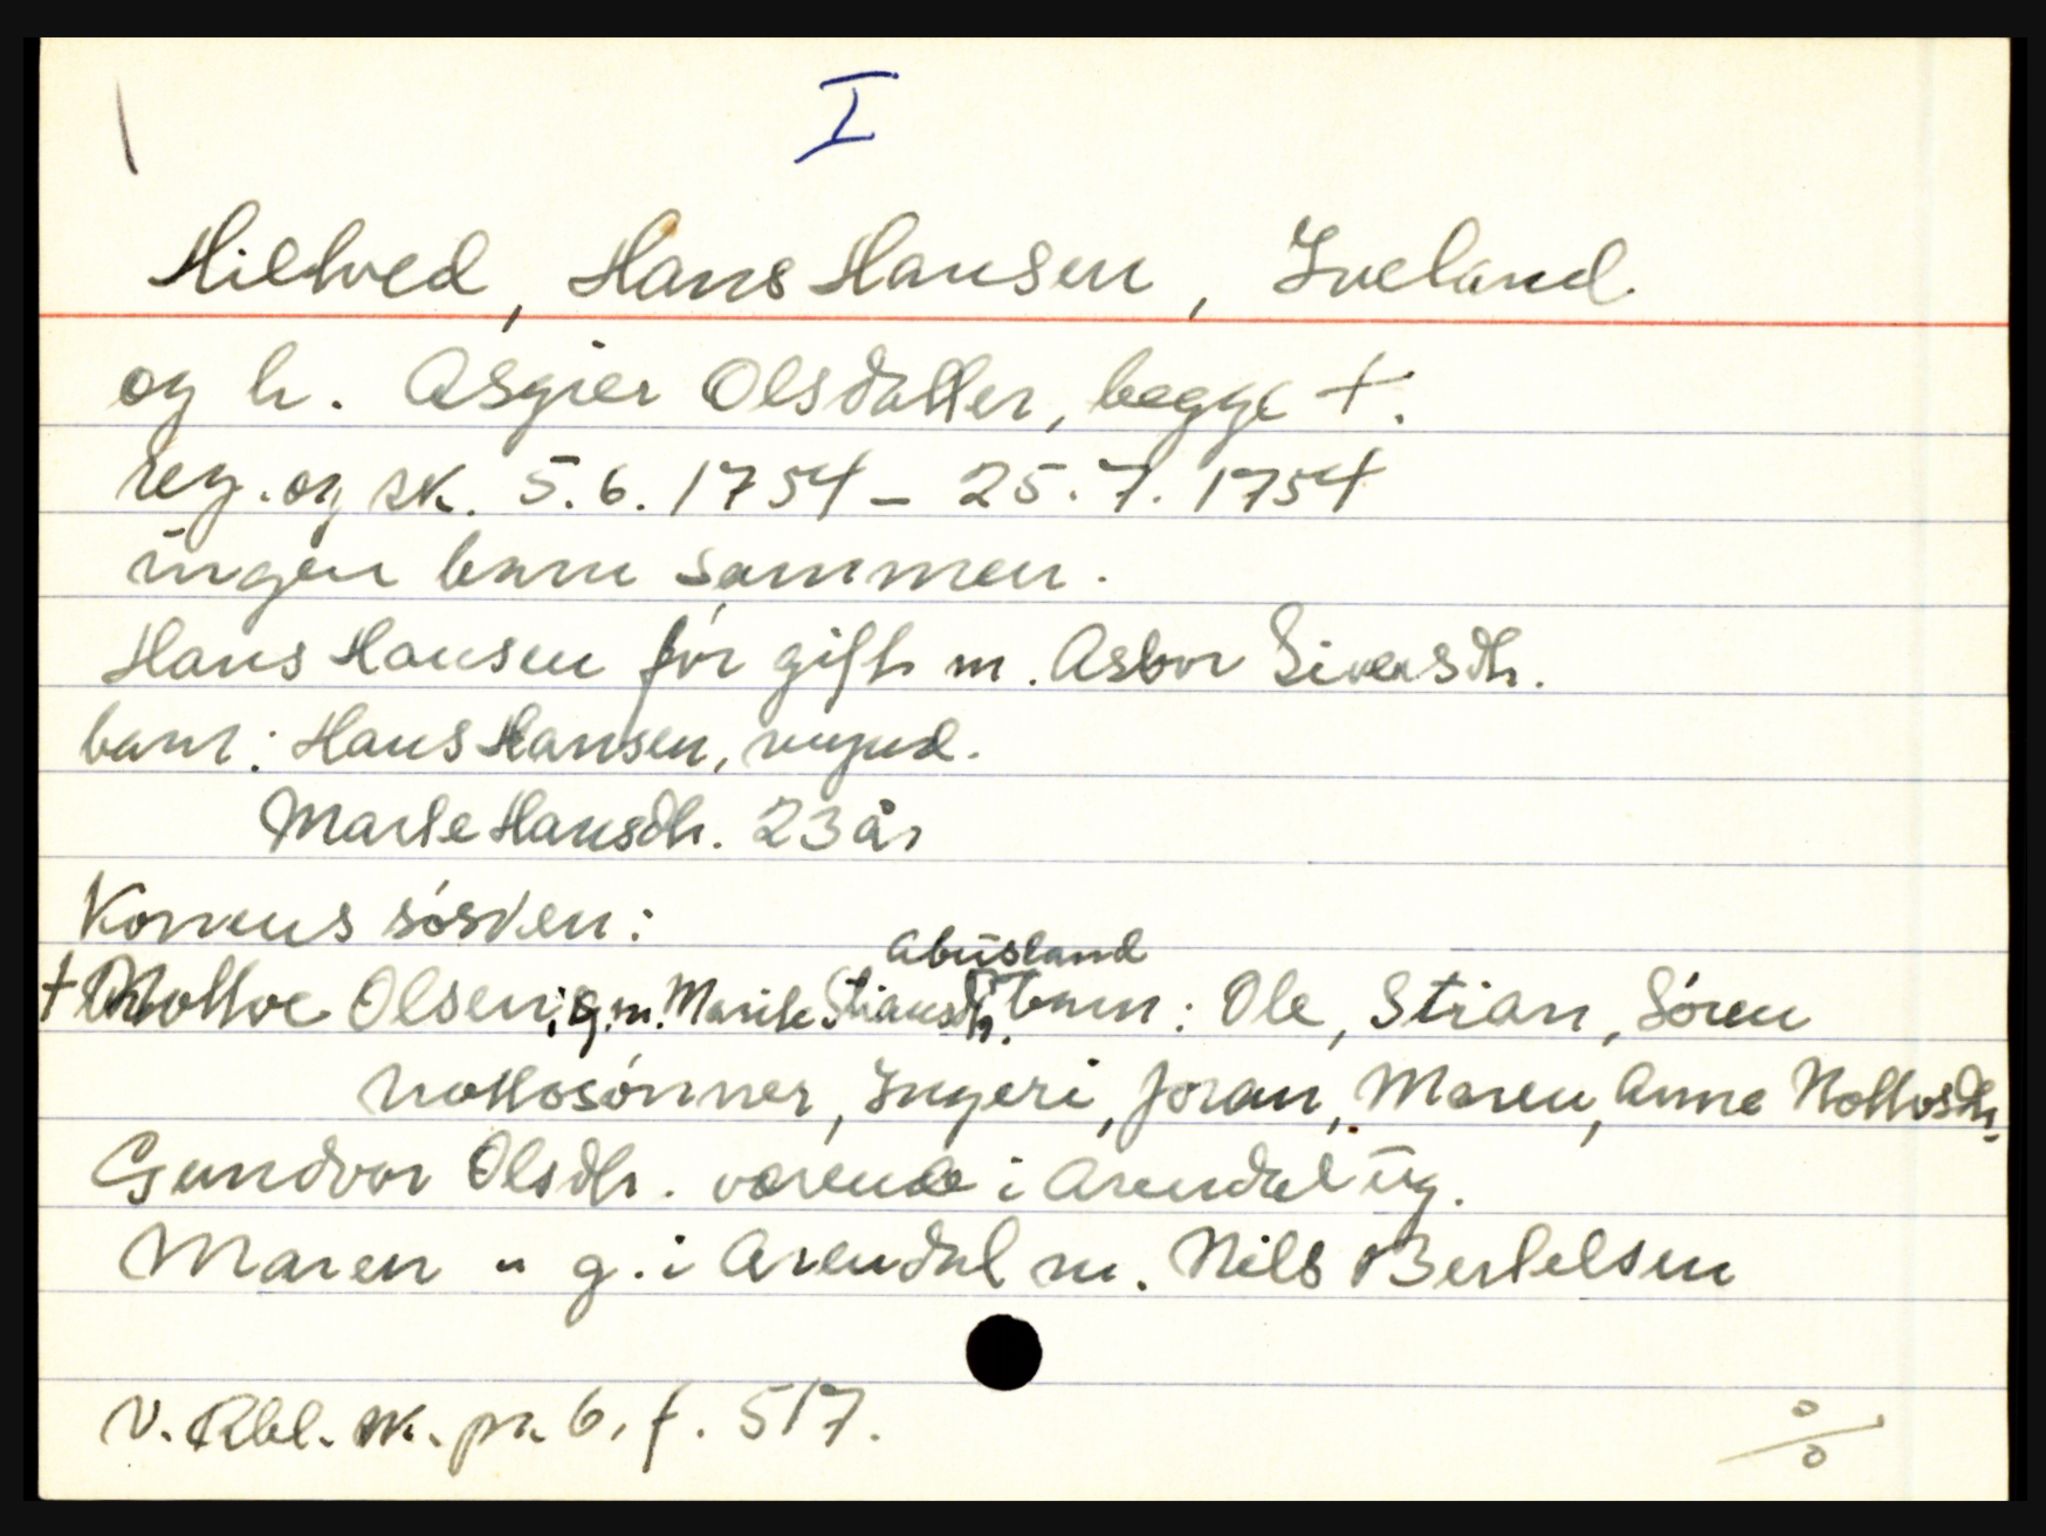 I
Hiltved, Hans Hansen, Iveland
og h. Asgier Olsdatter, begge +.
reg. og sk. 5.6.1754 - 25.7.1754
ingen barn sammen.
Hans Hansen før gift m. Asbor Siversdtr.
barn: Hans Hansen, mynd.
Marte Hansdtr. 23 år
Konens søsken:
Abusland
+ Nottov Olsen, g.m. Marite Stiansdtr. barn: Ole, Stian, Søren
Nottosønner, Ingeri, Joran, Maren, Anne Nottosdtr.
Gundvor Olsdtr. værende i Arendal ug.
Maren " g. i Arendal m. Nils Bertelsen
V. Rbl. sk. pr. 6, f. 517.
%